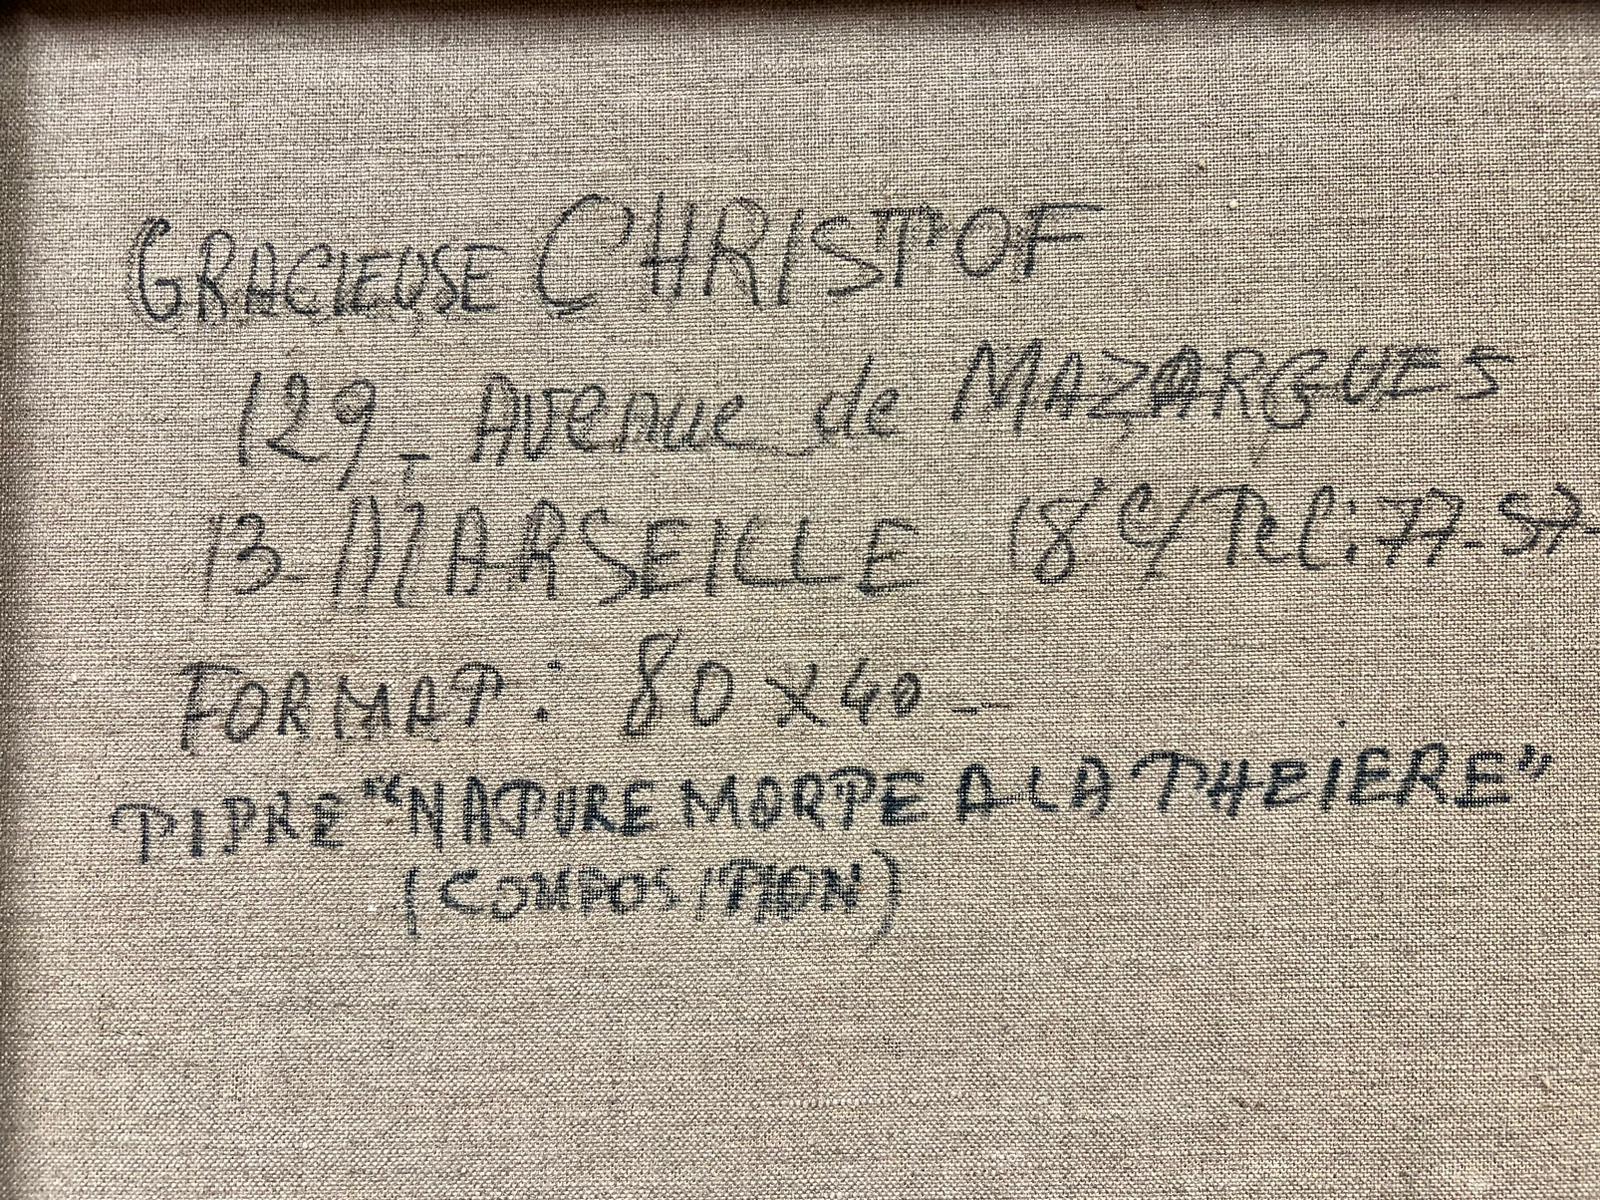 GRACIEUSE CHRISTOF
129_ AVENUE de MAZARGUES
13_MARSEILLE 18e/Tel: 77-57-
FORMAT: 80x40_
TITRE "NATURE MORTE A LA THEIERE"
(COMPOSITION)